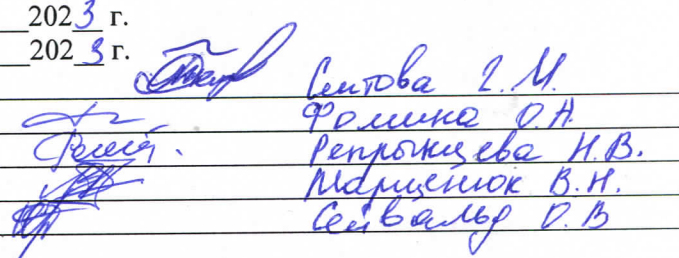 2023 г.
2023 г.
Сштова Г. М.
Фомина О.А
Репрынцева Н.В.
Марценюк В.Н.
Сейвальд О.В